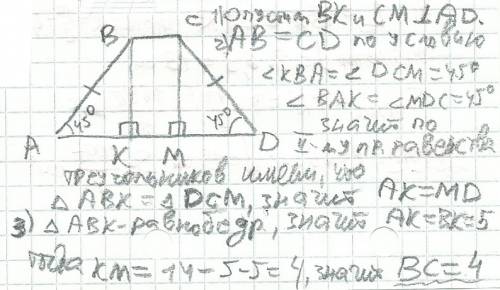 C
1) Опустим BK и CM ⊥ AD.
B
2) AB = CD по условию
∠KBA = ∠DCM = 45°
∠BAK = ∠MDC = 45°
45° 45°
значит по
A K M D
II-му пр. равенства
треугольников имеем, что
△ABK = △DCM, значит AK = MD
3) △ABK - равнобедр, значит AK = BK = 5
тогда KM = 14 - 5 - 5 = 4, значит BC = 4